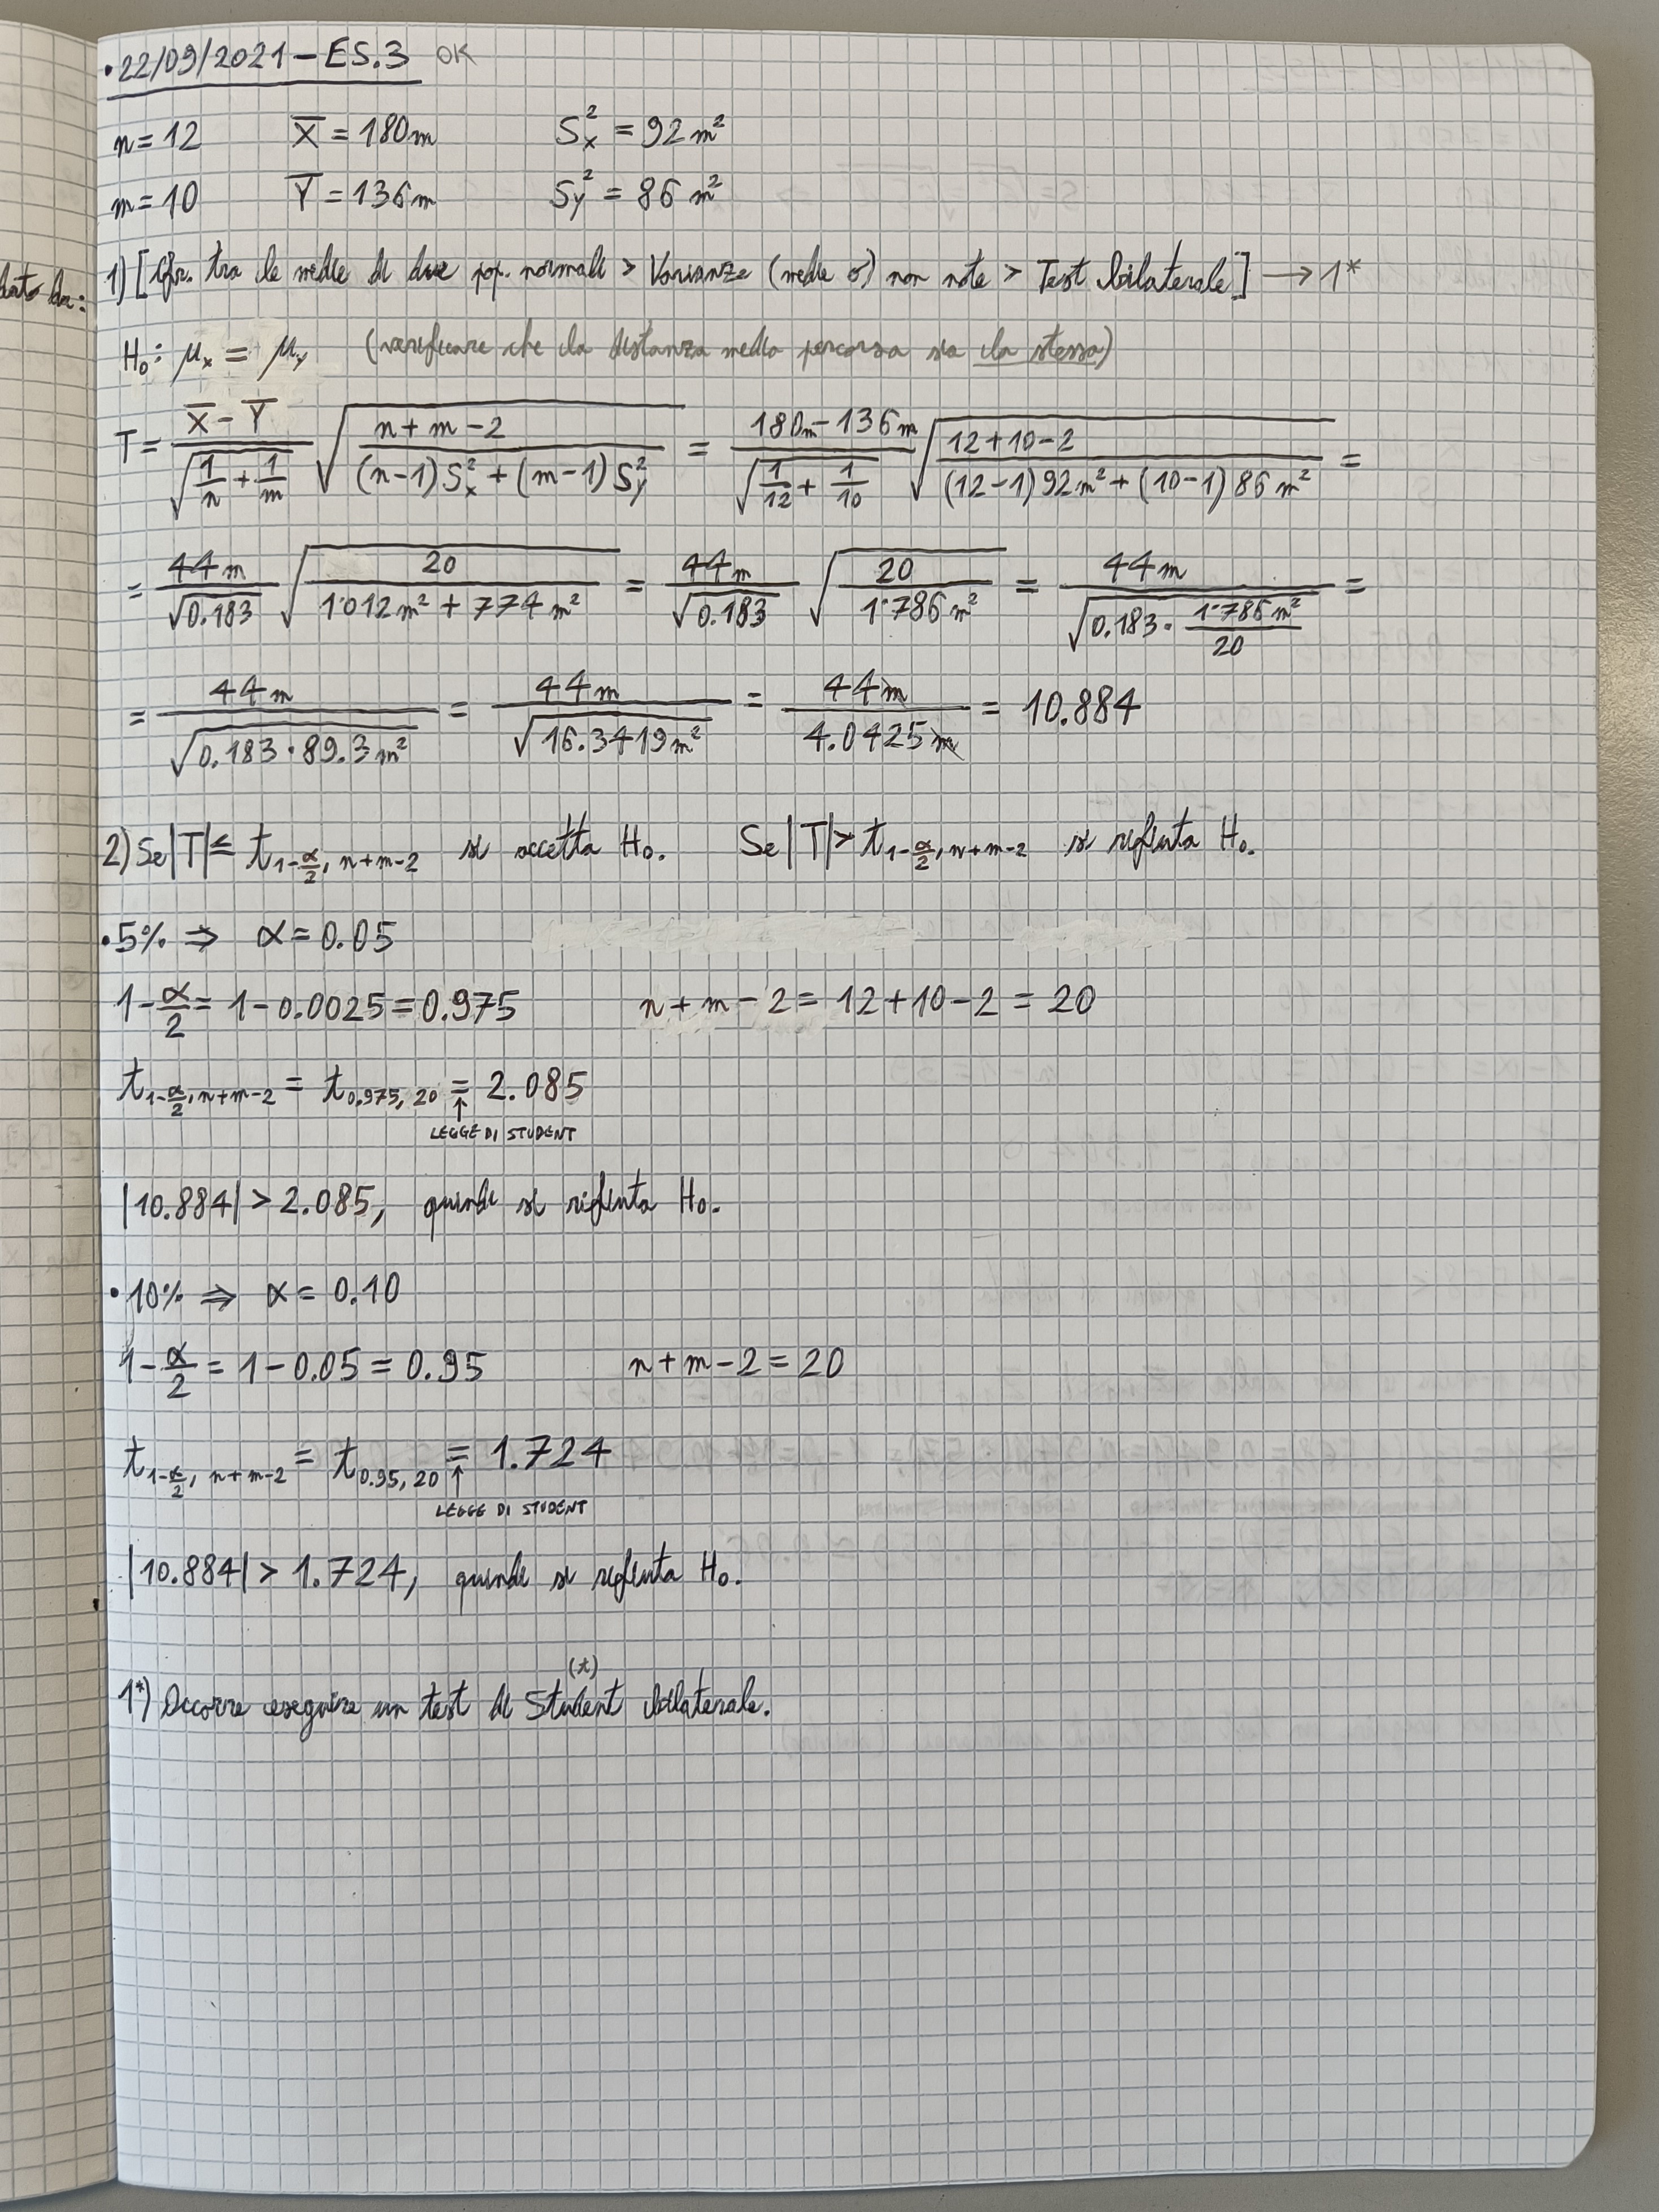 •22/09/2021 – ES.3 OK
n = 12 X̅ = 180m Sx² = 92 m²
m = 10 Y̅ = 136m Sy² = 86 m²
dato da:
1) [Cfr. tra le medie di due pop. normali > Varianze (medie o) non note > Test bilaterale] → 1*
H₀: μx = μy (verificare che la distanza media percorsa sia la stessa)
T = (X̅ – Y̅)/√(1/n + 1/m) √((n+m–2)/((n–1)Sx² + (m–1)Sy²)) = (180m – 136m)/√(1/12 + 1/10) √((12+10–2)/((12–1)92m² + (10–1)86m²)) =
= 44m/√0.183 √(20/(1'012m² + 774m²)) = 44m/√0.183 √(20/1'786m²) = 44m/√(0.183 · 1'786m²/20) =
= 44m/√(0.183 · 89.3m²) = 44m/√(16.3419m²) = 44m/4.0425m = 10.884
2) Se |T| ≤ t1–α/2, n+m–2 si accetta H₀. Se |T| > t1–α/2, n+m–2 si rifiuta H₀.
•5% ⇒ α = 0.05
1 – α/2 = 1 – 0.0025 = 0.975 n + m – 2 = 12 + 10 – 2 = 20
t1–α/2, n+m–2 = t0.975, 20 = 2.085
↑
LEGGE DI STUDENT
|10.884| > 2.085, quindi si rifiuta H₀.
•10% ⇒ α = 0.10
1 – α/2 = 1 – 0.05 = 0.95 n + m – 2 = 20
t1–α/2, n+m–2 = t0.95, 20 = 1.724
↑
LEGGE DI STUDENT
|10.884| > 1.724, quindi si rifiuta H₀.
(t)
1*) Occorre eseguire un test di Student bilaterale.